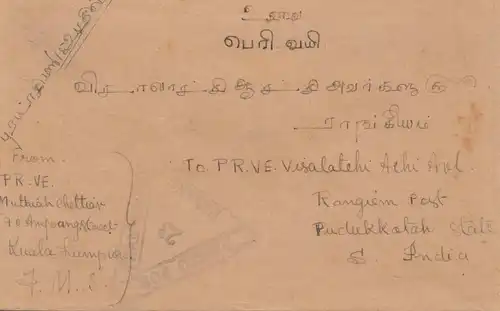 உ
பெரி வயி
விசாலாட்சி ஆச்சி அவர்களுக்கு
ராங்கியம்
From
PR.VE.
Muthiah Chettiar
70 Ampang Street
Kuala Lumpur
F. M. S.
To PR.VE. Visalatchi Achi Avl.
Rangiem Post
Pudukkotah State
S. India